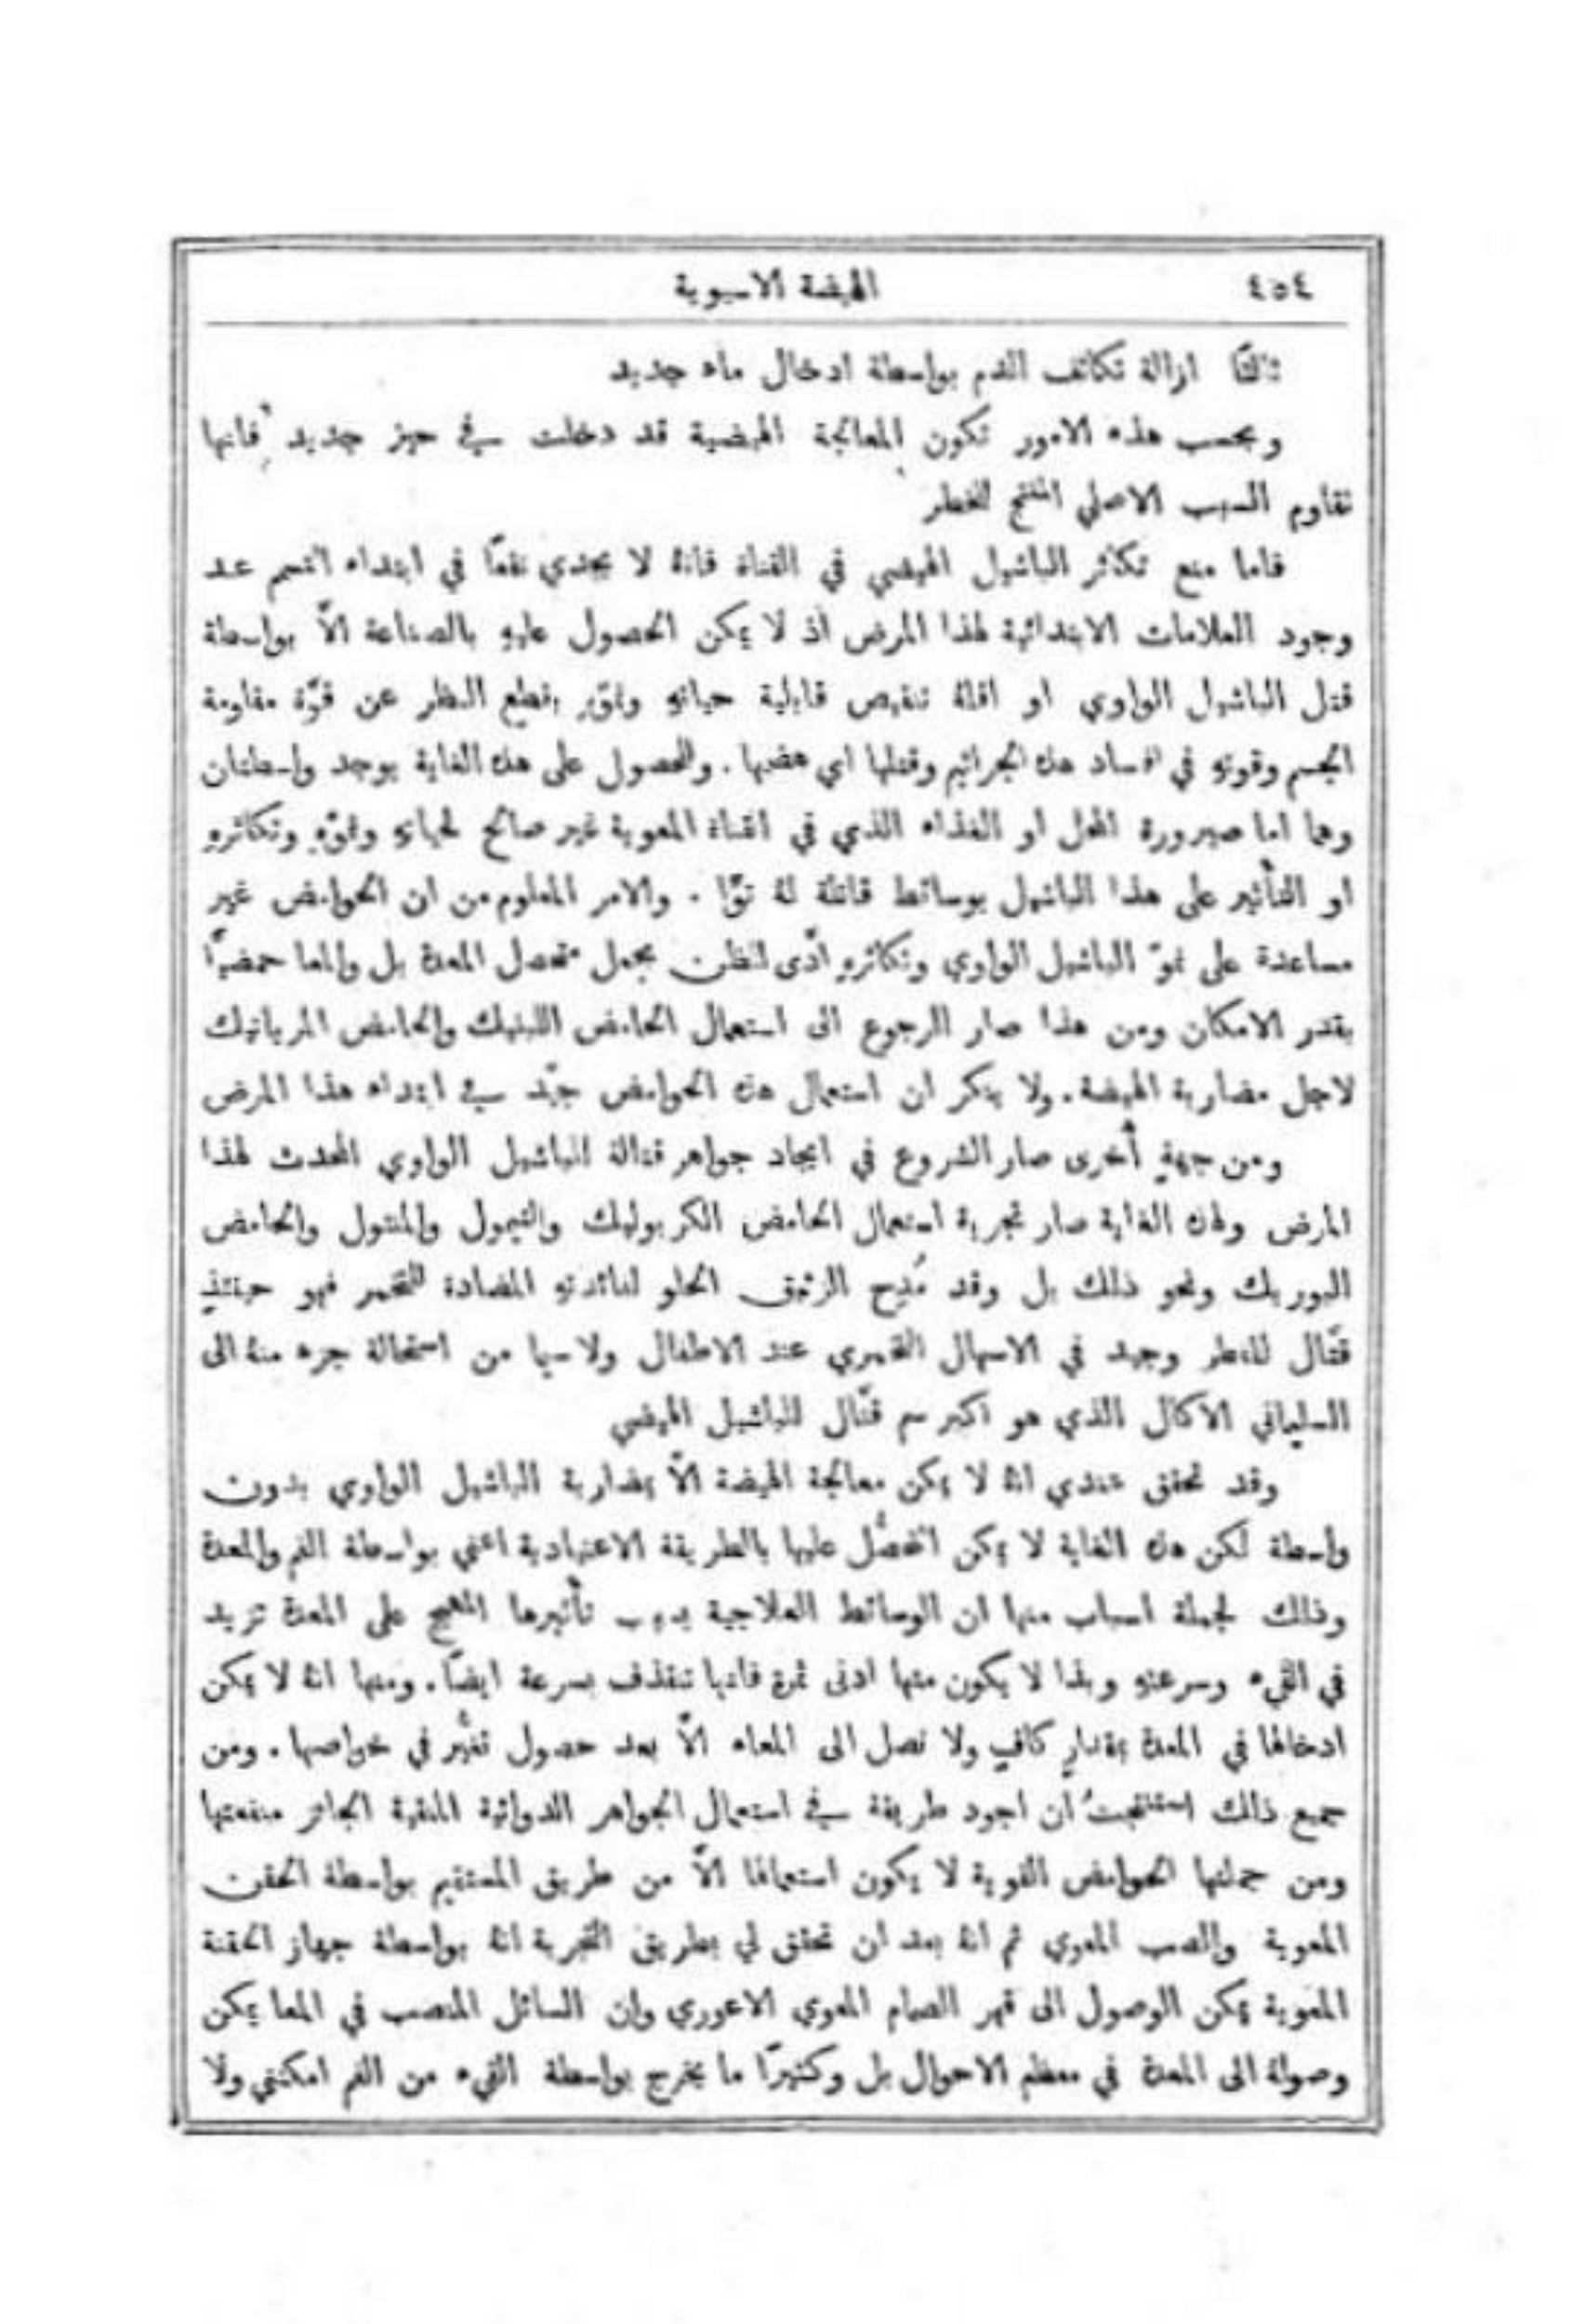 ٤٥٤ الهيضة الاسيوية
ثالثًا ازالة تكاثف الدم بواسطة ادخال ماء جديد
وبحسب هذه الامور تكون المعالجة الهيضية قد دخلت في حيز جديد فانها
تقاوم السبب الاصلي المنتج للخطر
فاما منع تكاثر الباشيل الهيضي في القناة فانهُ لا يجدي نفعًا في ابتداء التسمم عند
وجود العلامات الابتدائية لهذا المرض اذ لا يمكن الحصول عليهِ بالصناعة الاَّ بواسطة
قتل الباشيل الواوي او اقلهُ تنقيص قابلية حياتهِ ونموّهِ بقطع النظر عن قوّة مقاومة
الجسم وقوتهِ في افساد هذه الجراثيم وقتلها اي هضمها . وللحصول على هذه الغاية يوجد واسطتان
وهما اما صيرورة المحل او الغذاء الذي في القناة المعوية غير صالح لحياتهِ ونموّهِ وتكاثرهِ
او التأثير على هذا الباشيل بوسائط قاتلة لهُ توًّا . والامر المعلوم من ان الحوامض غير
مساعدة على نموّ الباشيل الواوي وتكاثرهِ ادَّى للظن بجعل متحصل المعدة بل والمعا حمضيًّا
بقدر الامكان ومن هذا صار الرجوع الى استعمال الحامض اللبنيك والحامض المرياتيك
لاجل مضاربة الهيضة . ولا ينكر ان استعمال هذه الحوامض جيّد في ابتداء هذا المرض
ومن جهةٍ أخرى صار الشروع في ايجاد جواهر قتالة للباشيل الواوي المحدث لهذا
المرض ولهذه الغاية صار تجربة استعمال الحامض الكربوليك والتيمول والمنثول والحامض
البوريك ونحو ذلك بل وقد مُدِح الزئبق الحلو لفائدتهِ المضادة للتخمر فهو حينئذٍ
قتّال للفطر وجيد في الاسهال التخمري عند الاطفال ولاسيما من استحالة جزء منهُ الى
السليماني الاكال الذي هو اكبر سم قتّال للباشيل الهيضي
وقد تحقق عندي انهُ لا يمكن معالجة الهيضة الاَّ بمضاربة الباشيل الواوي بدون
واسطة لكن هذه الغاية لا يمكن التحصُّل عليها بالطريقة الاعتيادية اعني بواسطة الفم والمعدة
وذلك لجملة اسباب منها ان الوسائط العلاجية بسبب تأثيرها المهيج على المعدة تزيد
في القيء وسرعتهِ وبذا لا يكون منها ادنى ثمرة فانها تنقذف بسرعة ايضًا . ومنها انهُ لا يمكن
ادخالها في المعدة بمقدارٍ كافٍ ولا تصل الى المعاء الاَّ بعد حصول تغيُّر في خواصها . ومن
جميع ذلك استنتجتُ ان اجود طريقة في استعمال الجواهر الدوائية المنقية الجائز منفعتها
ومن جملتها الحوامض القوية لا يكون استعمالها الاَّ من طريق المستقيم بواسطة الحقن
المعوية والصب المعوي ثم انهُ بعد ان تحقق لي بطريق التجربة انهُ بواسطة جهاز الحقنة
المعوية يمكن الوصول الى قهر الصمام المعوي الاعوري وان السائل المنصب في المعا يمكن
وصولهُ الى المعدة في معظم الاحوال بل وكثيرًا ما يخرج بواسطة القيء من الفم امكنني ولا